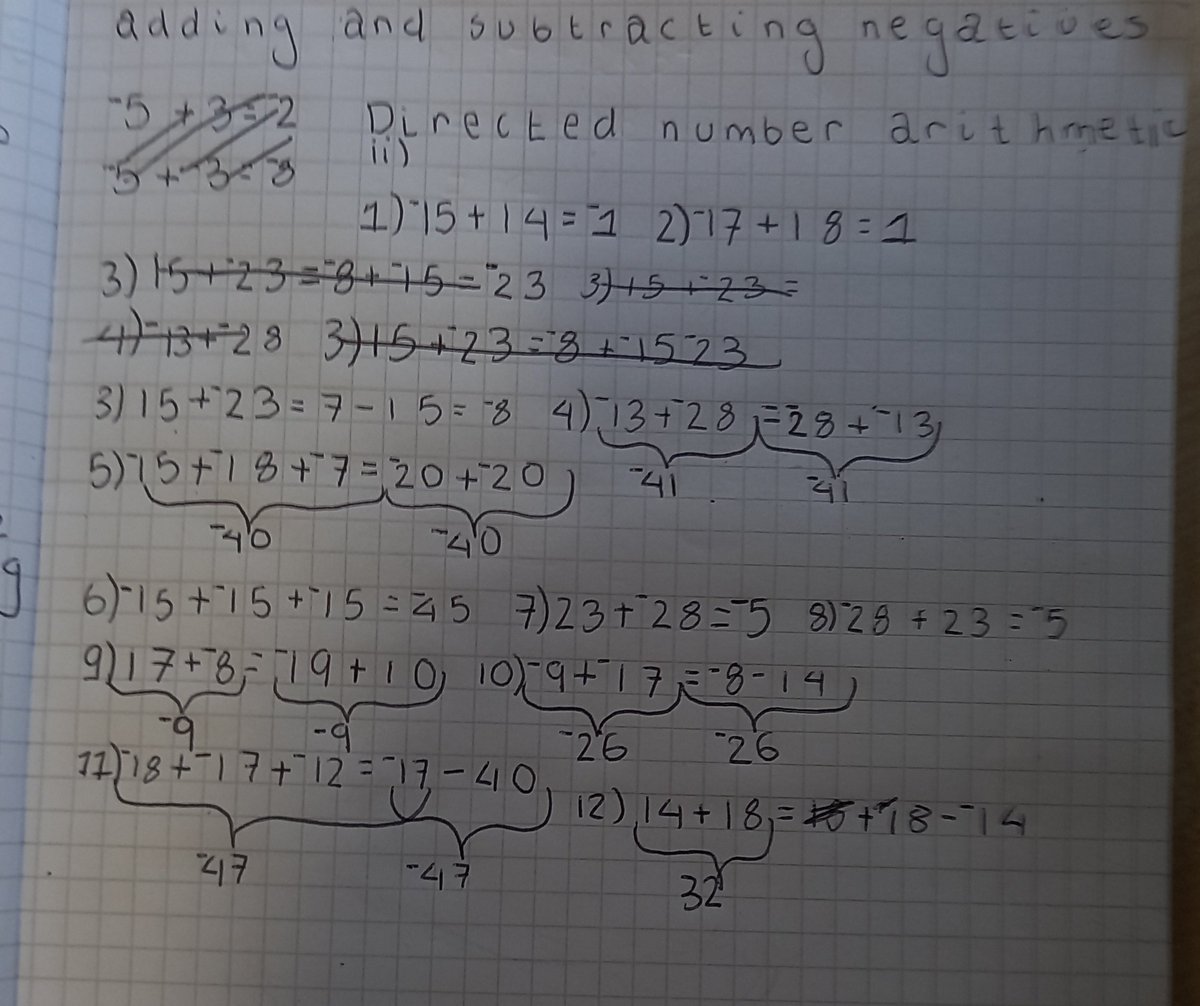 adding and subtracting negatives
⁻5 + 3 = ⁻2 Directed number arithmetic
⁻5 + ⁻3 = ⁻8 ii)
1) ⁻15 + 14 = ⁻1 2) ⁻17 + 18 = 1
3) 15 + ⁻23 = ⁻8 + ⁻15 = ⁻23 3) 15 + ⁻23 =
4) ⁻13 + ⁻28 3) 15 + ⁻23 = ⁻8 + ⁻15 ⁻23
3) 15 + ⁻23 = 7 - 15 = ⁻8 4) ⁻13 + ⁻28 = ⁻28 + ⁻13
⁻41 ⁻41
5) ⁻15 + ⁻18 + ⁻7 = ⁻20 + ⁻20
⁻40 ⁻40
6) ⁻15 + ⁻15 + ⁻15 = ⁻45 7) 23 + ⁻28 = ⁻5 8) ⁻28 + 23 = ⁻5
9) 17 + ⁻8 = ⁻19 + 10 10) ⁻9 + ⁻17 = ⁻8 - 14
⁻9 -9 ⁻26 ⁻26
11) ⁻18 + ⁻17 + ⁻12 = ⁻17 - 40
12) 14 + 18 = + ⁻18 - ⁻14
⁻47 ⁻47 32